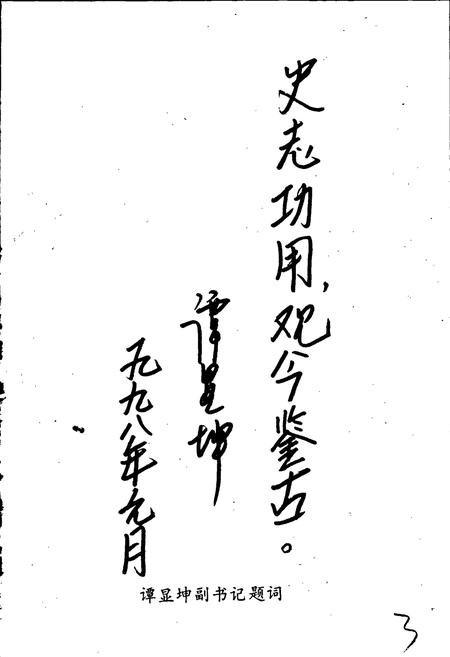 史志功用，观今鉴古。
谭显坤
一九九八年元月
谭显坤副书记题词
3